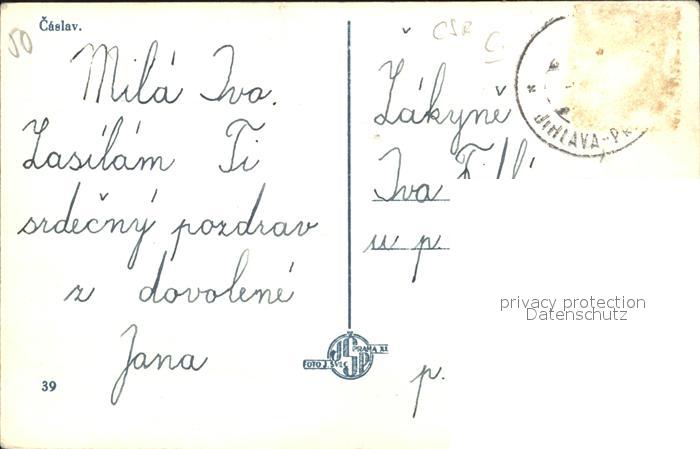 Čáslav.
50
ČSR
C.
Milá Ivo.
Zasílám Ti
srdečný pozdrav
z dovolené
Jana
39
Žákyně
Iva
u p.
p.
JIHLAVA-P
JŠP
PRAHA XI.
FOTO J. ŠVEC
privacy protection
Datenschutz